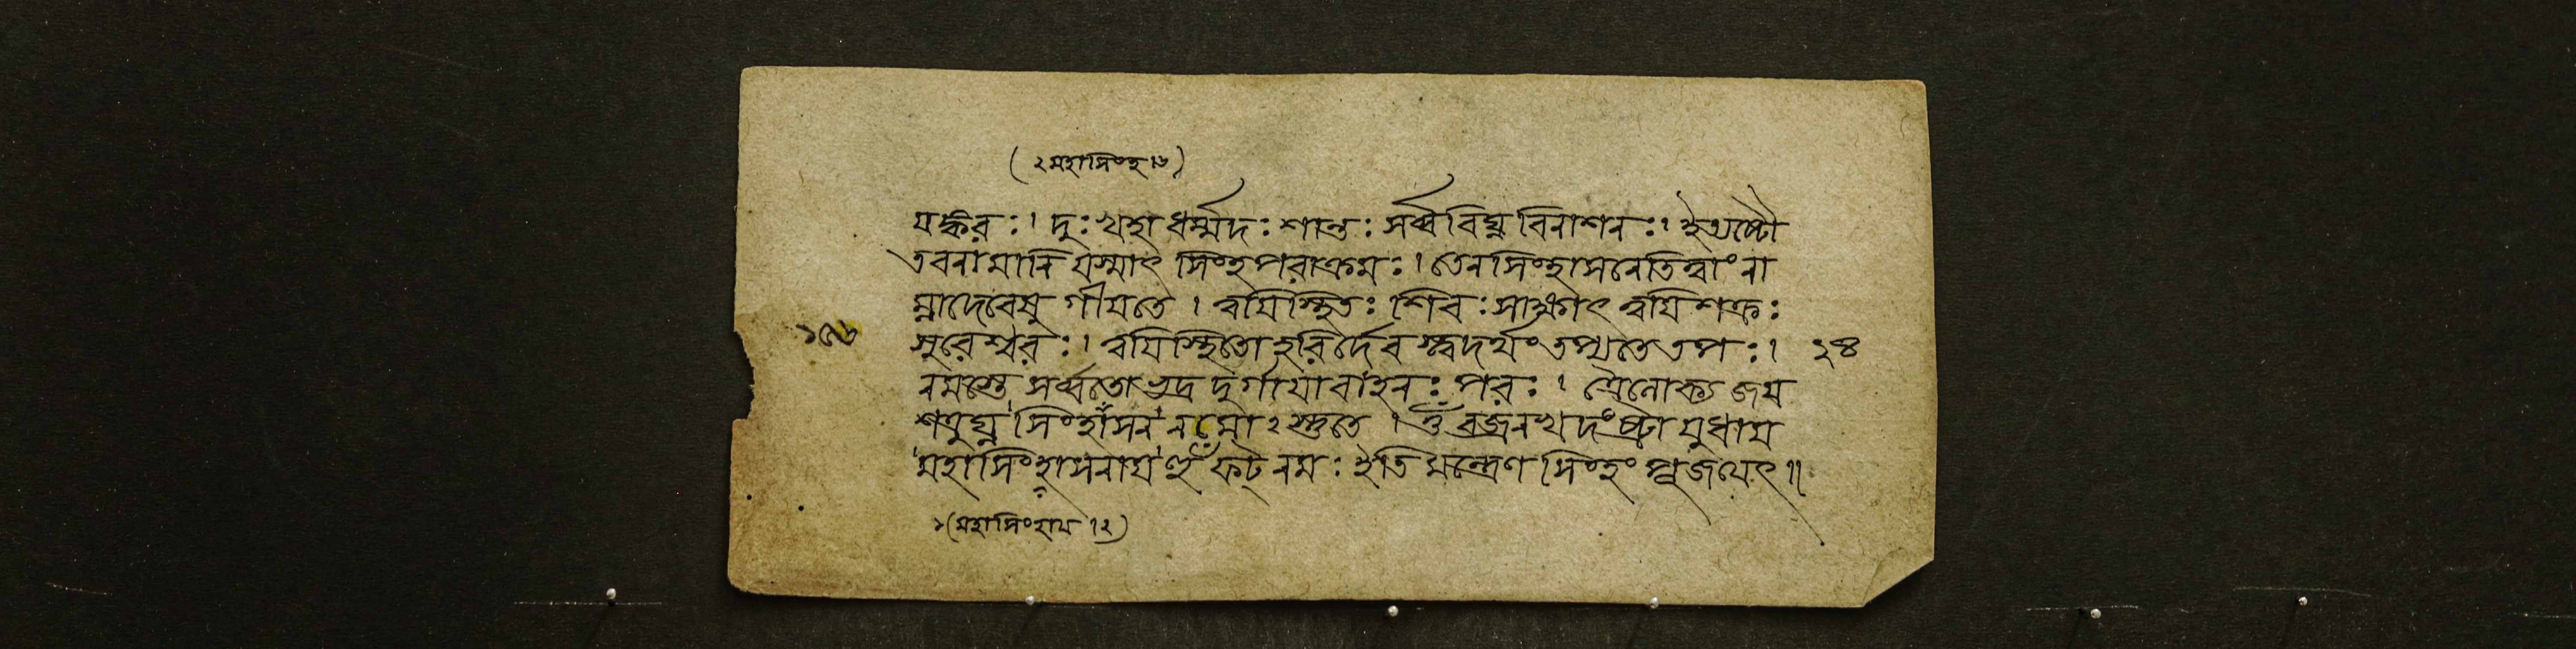 (২ মহাসিংহ ৷৬)
যস্করঃ৷ দুঃখহা ধর্ম্মদঃ শান্তঃ সর্ব্ববিঘ্নবিনাশনঃ৷ ইত্যষ্টৌ
তবনামানি যস্মাৎ সিংহপরাক্রমঃ৷ তেনসিংহাসনেতিত্বাং না
ম্নাদেবেষু গীয়তে ৷ ত্বয়িস্থিতঃ শিবঃ সাক্ষাৎ ত্বয়িশক্রঃ
সুরেশ্বরঃ৷ ত্বয়িস্থিতো হরির্দেব স্ত্বদর্থং তপ্যতে তপঃ৷ ২৪
নমস্তে সর্ব্বতোভদ্র দুর্গায়াবাহনঃ পরঃ ৷ ত্রৈলোক্য জয়
শত্রুঘ্ন সিংহাসন নমোঽস্তুতে ৷ ওঁ বজ্রনখদংষ্ট্রায়ুধায়
মহাসিংহাসনায় হুঁ ফট্ নমঃ ইতি মন্ত্রেণ সিংহং পূজয়েৎ৷৷
১(মহাসিংহায় ৷২)